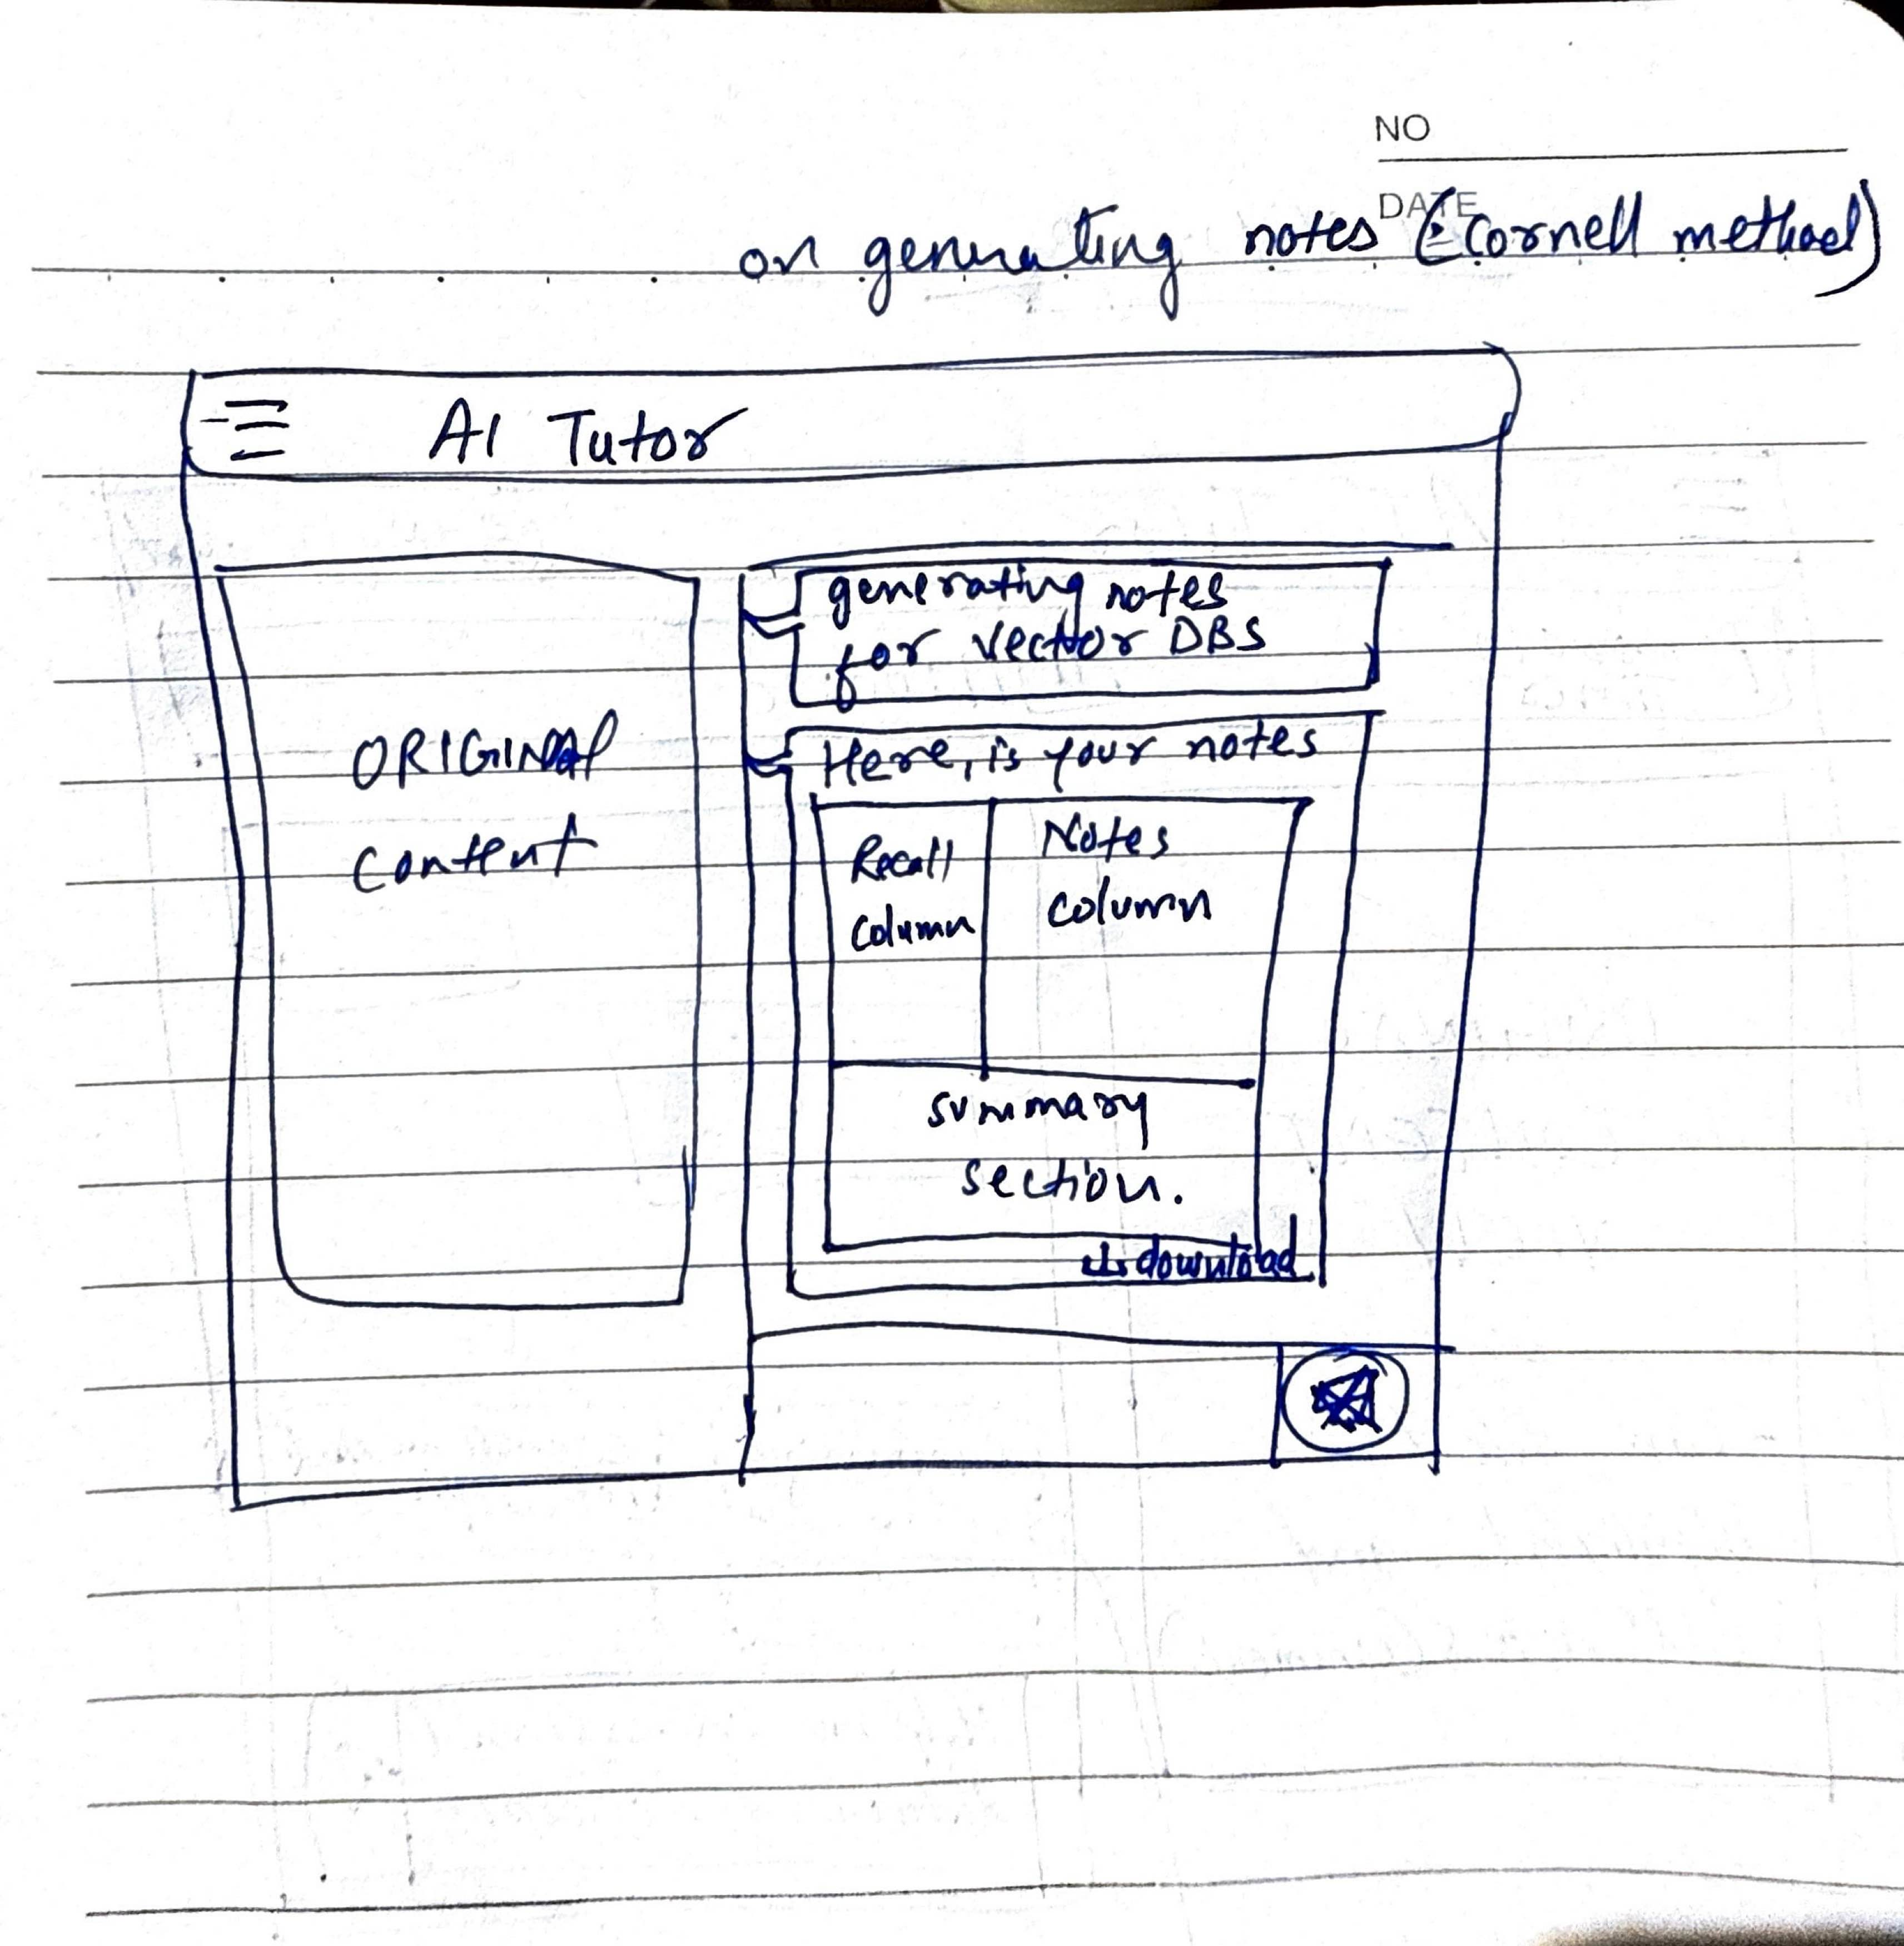 NO
DATE
on generating notes (cornell method)
AI Tutor
ORIGINAL
content
generating notes
for vector DBS
Here, is your notes
Recall
column
Notes
column
summary
section.
download